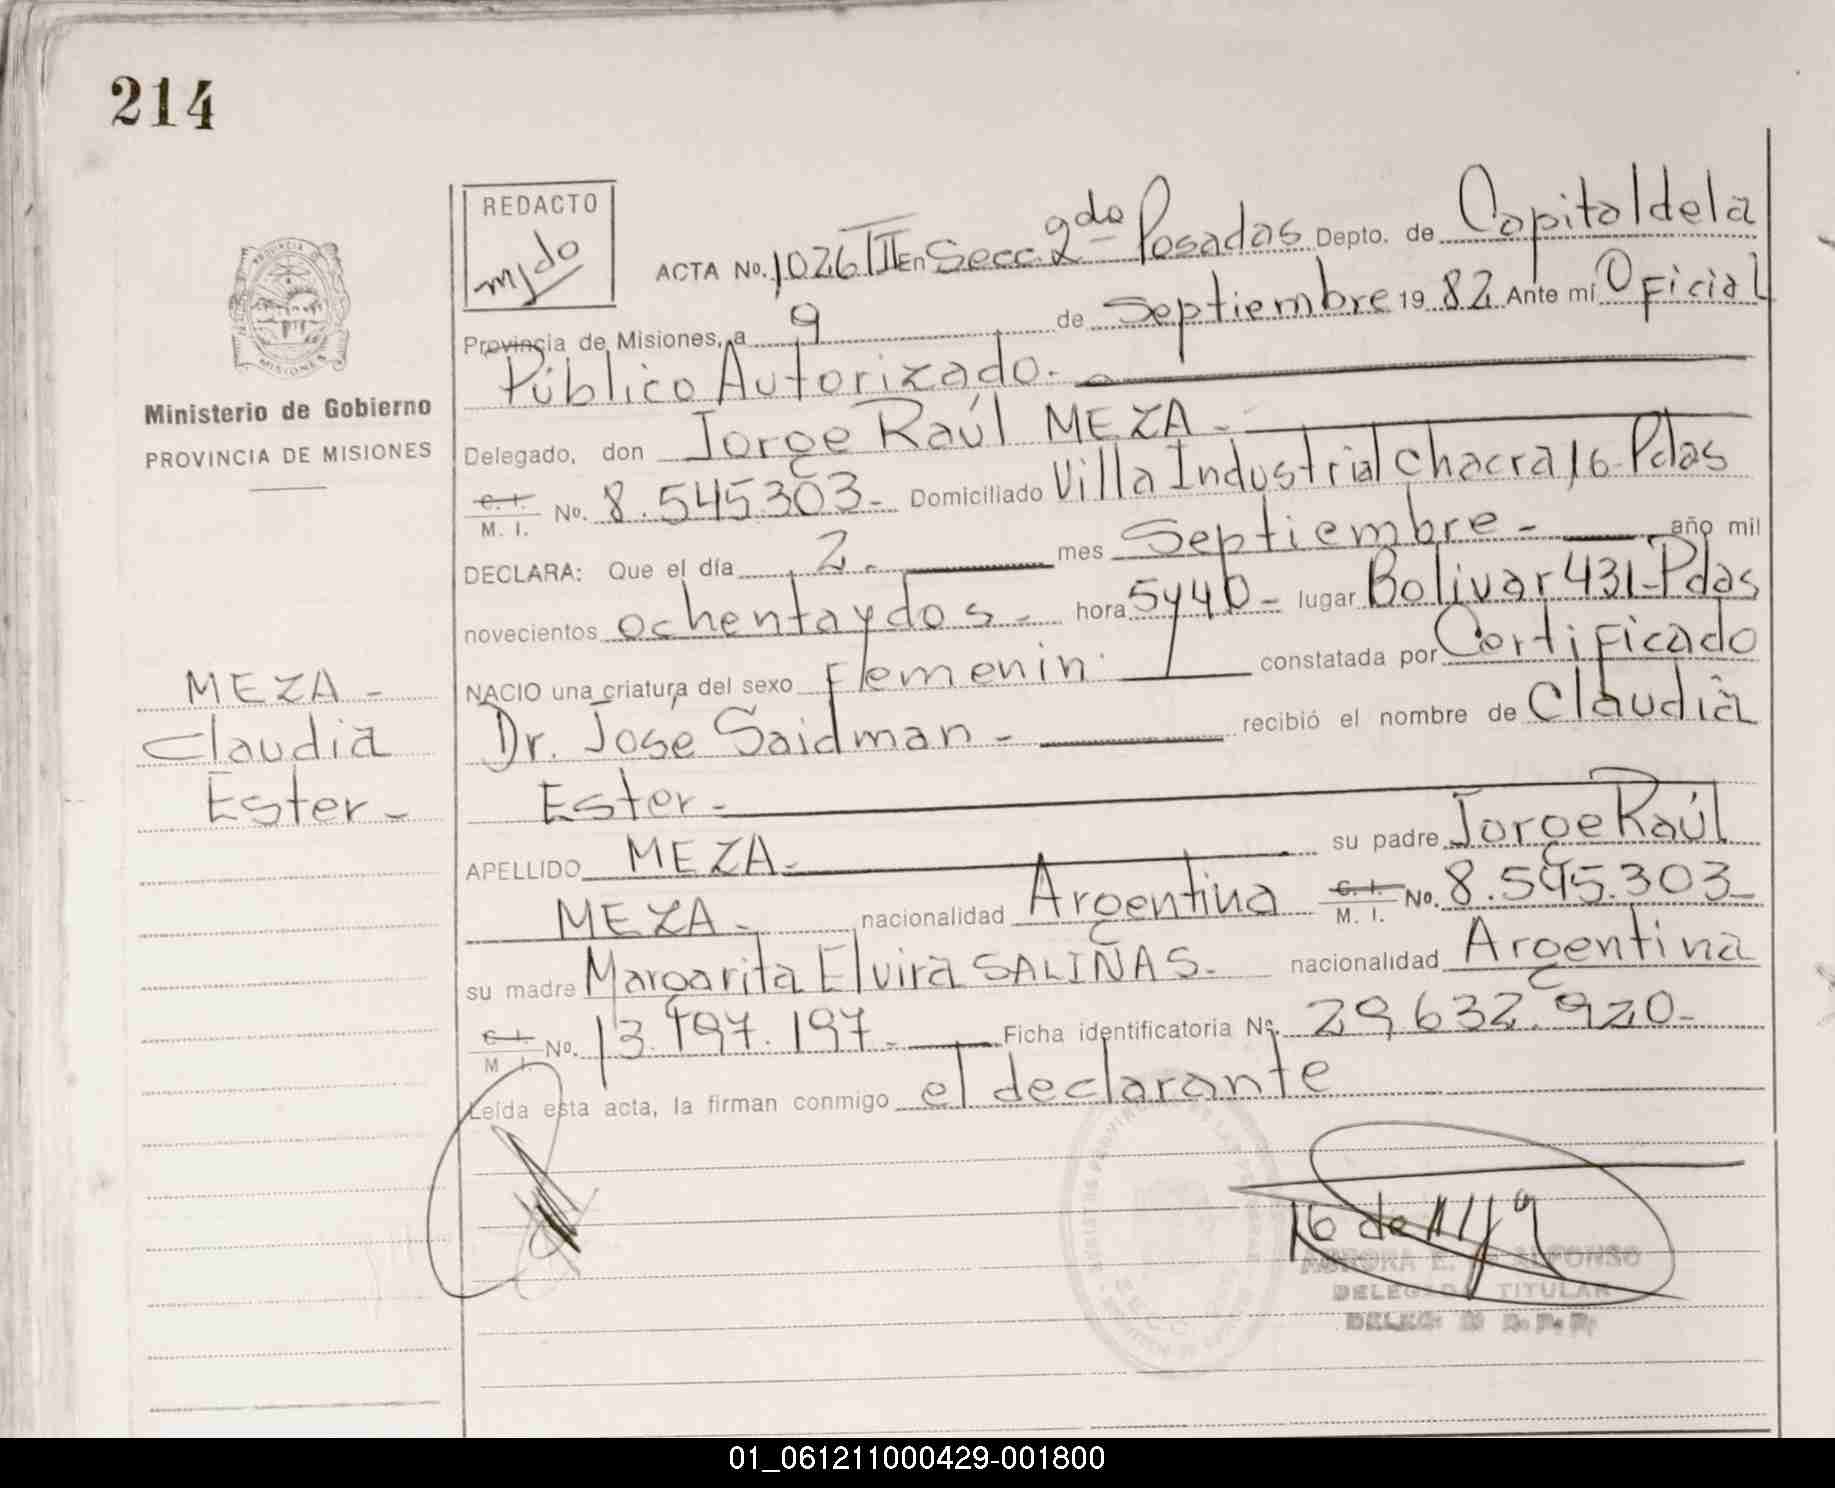 214
REDACTO
ACTA No. 1026 TII En Secc. 2da Posadas Depto. de Capital de la
Provincia de Misiones, a 9 de Septiembre 19 82 Ante mi Oficial
Público Autorizado.-
Ministerio de Gobierno
PROVINCIA DE MISIONES
Delegado, don Jorge Raúl MEZA.-
C. I. M. I. No. 8.545.303- Domiciliado Villa Industrial Chacra 16-Pdas
DECLARA: Que el día 2.- mes Septiembre- año mil
novecientos ochentaydos.- hora 5y40- lugar Bolivar 431-Pdas
NACIO una criatura del sexo Femenin. constatada por Certificado
Dr. José Saidman- recibió el nombre de Claudia
Ester-
MEZA-
Claudia
Ester-
APELLIDO MEZA- su padre Jorge Raúl
MEZA- nacionalidad Argentina C. I. M. I. No. 8.545.303-
su madre Margarita Elvira SALIÑAS.- nacionalidad Argentina
C. I. M. I. No. 13.197.197.- Ficha identificatoria No. 29.632.920-
Leída esta acta, la firman conmigo el declarante
16 de
AURORA E. ALFONSO
DELEGADA TITULAR
01_061211000429-001800